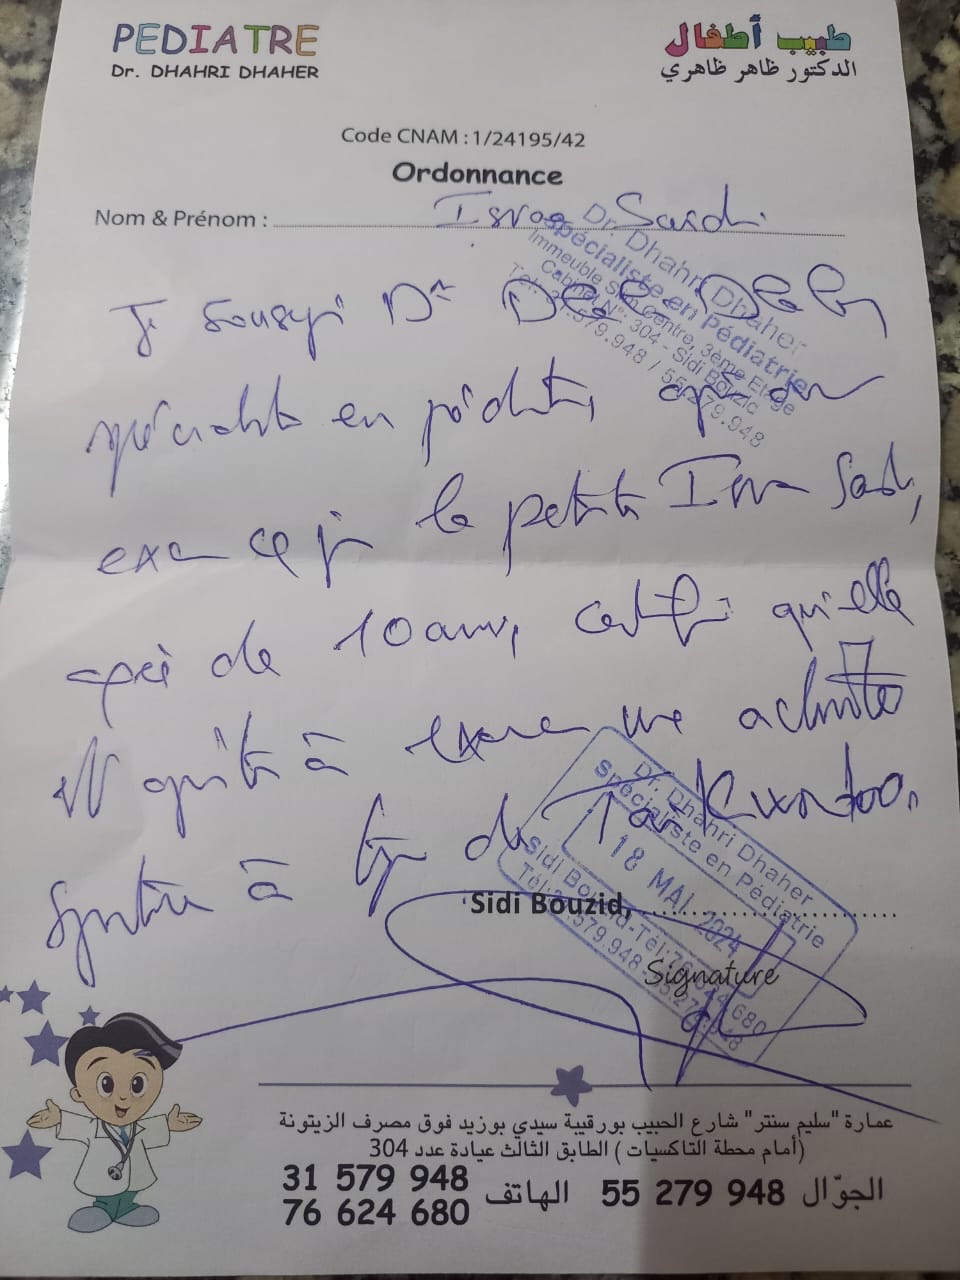 PEDIATRE
Dr. DHAHRI DHAHER
طبيب أطفال
الدكتور ظاهر ظاهري
Code CNAM : 1/24195/42
Ordonnance
Nom & Prénom :
Dr. Dhahri Dhaher
spécialiste en Pédiatrie
Immeuble Slim Centre, 3ème Etage
Cabinet N°: 304 - Sidi Bouzid
Tél: 31.579.948 / 55.279.948
Je soussigné Dr
spécialiste en pédiatrie, après avoir
examiné la petite Isra
âgée de 10 ans, certifie qu'elle
est apte à exercer une activité
sportive à type de Taï Kwondoo.
Dr. Dhahri Dhaher
Spécialiste en Pédiatrie
18 MAI 2024
Sidi Bouzid-Tél:76.624.680
Tél:31.579.948-55.279.948
Sidi Bouzid,
Signature
عمارة "سليم سنتر" شارع الحبيب بورقيبة سيدي بوزيد فوق مصرف الزيتونة
(أمام محطة التاكسيات) الطابق الثالث عيادة عدد 304
31 579 948
76 624 680
الهاتف
55 279 948
الجوّال